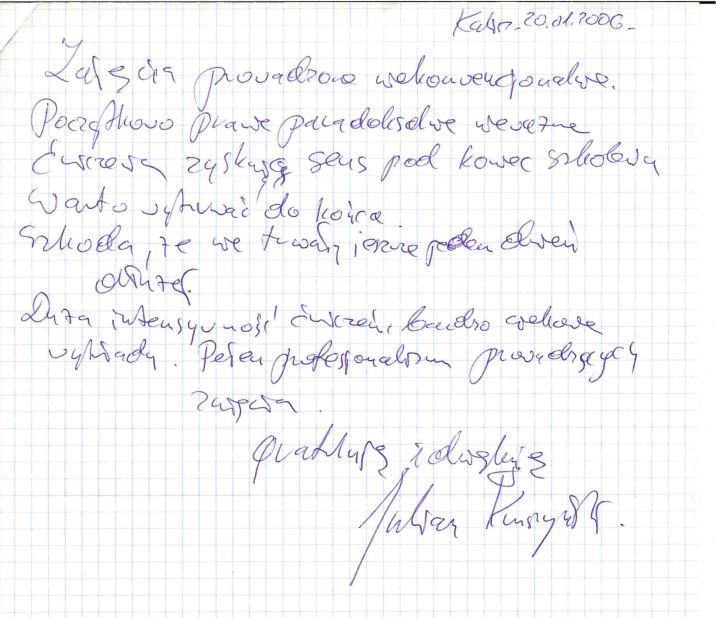 20.01.2006-
Zajęcia prowadzone niekonwencjonalnie.
Początkowo prawie paradoksalne
ćwiczenia zyskują sens pod koniec szkolenia
Warto wytrwać do końca
Szkoda, że nie trwały jeszcze jeden dzień
dłużej.
Duża intensywność ćwiczeń, bardzo ciekawe
wykłady. Pełen profesjonalizm prowadzących
zajęcia.
Gratuluję i dziękuję
Julian